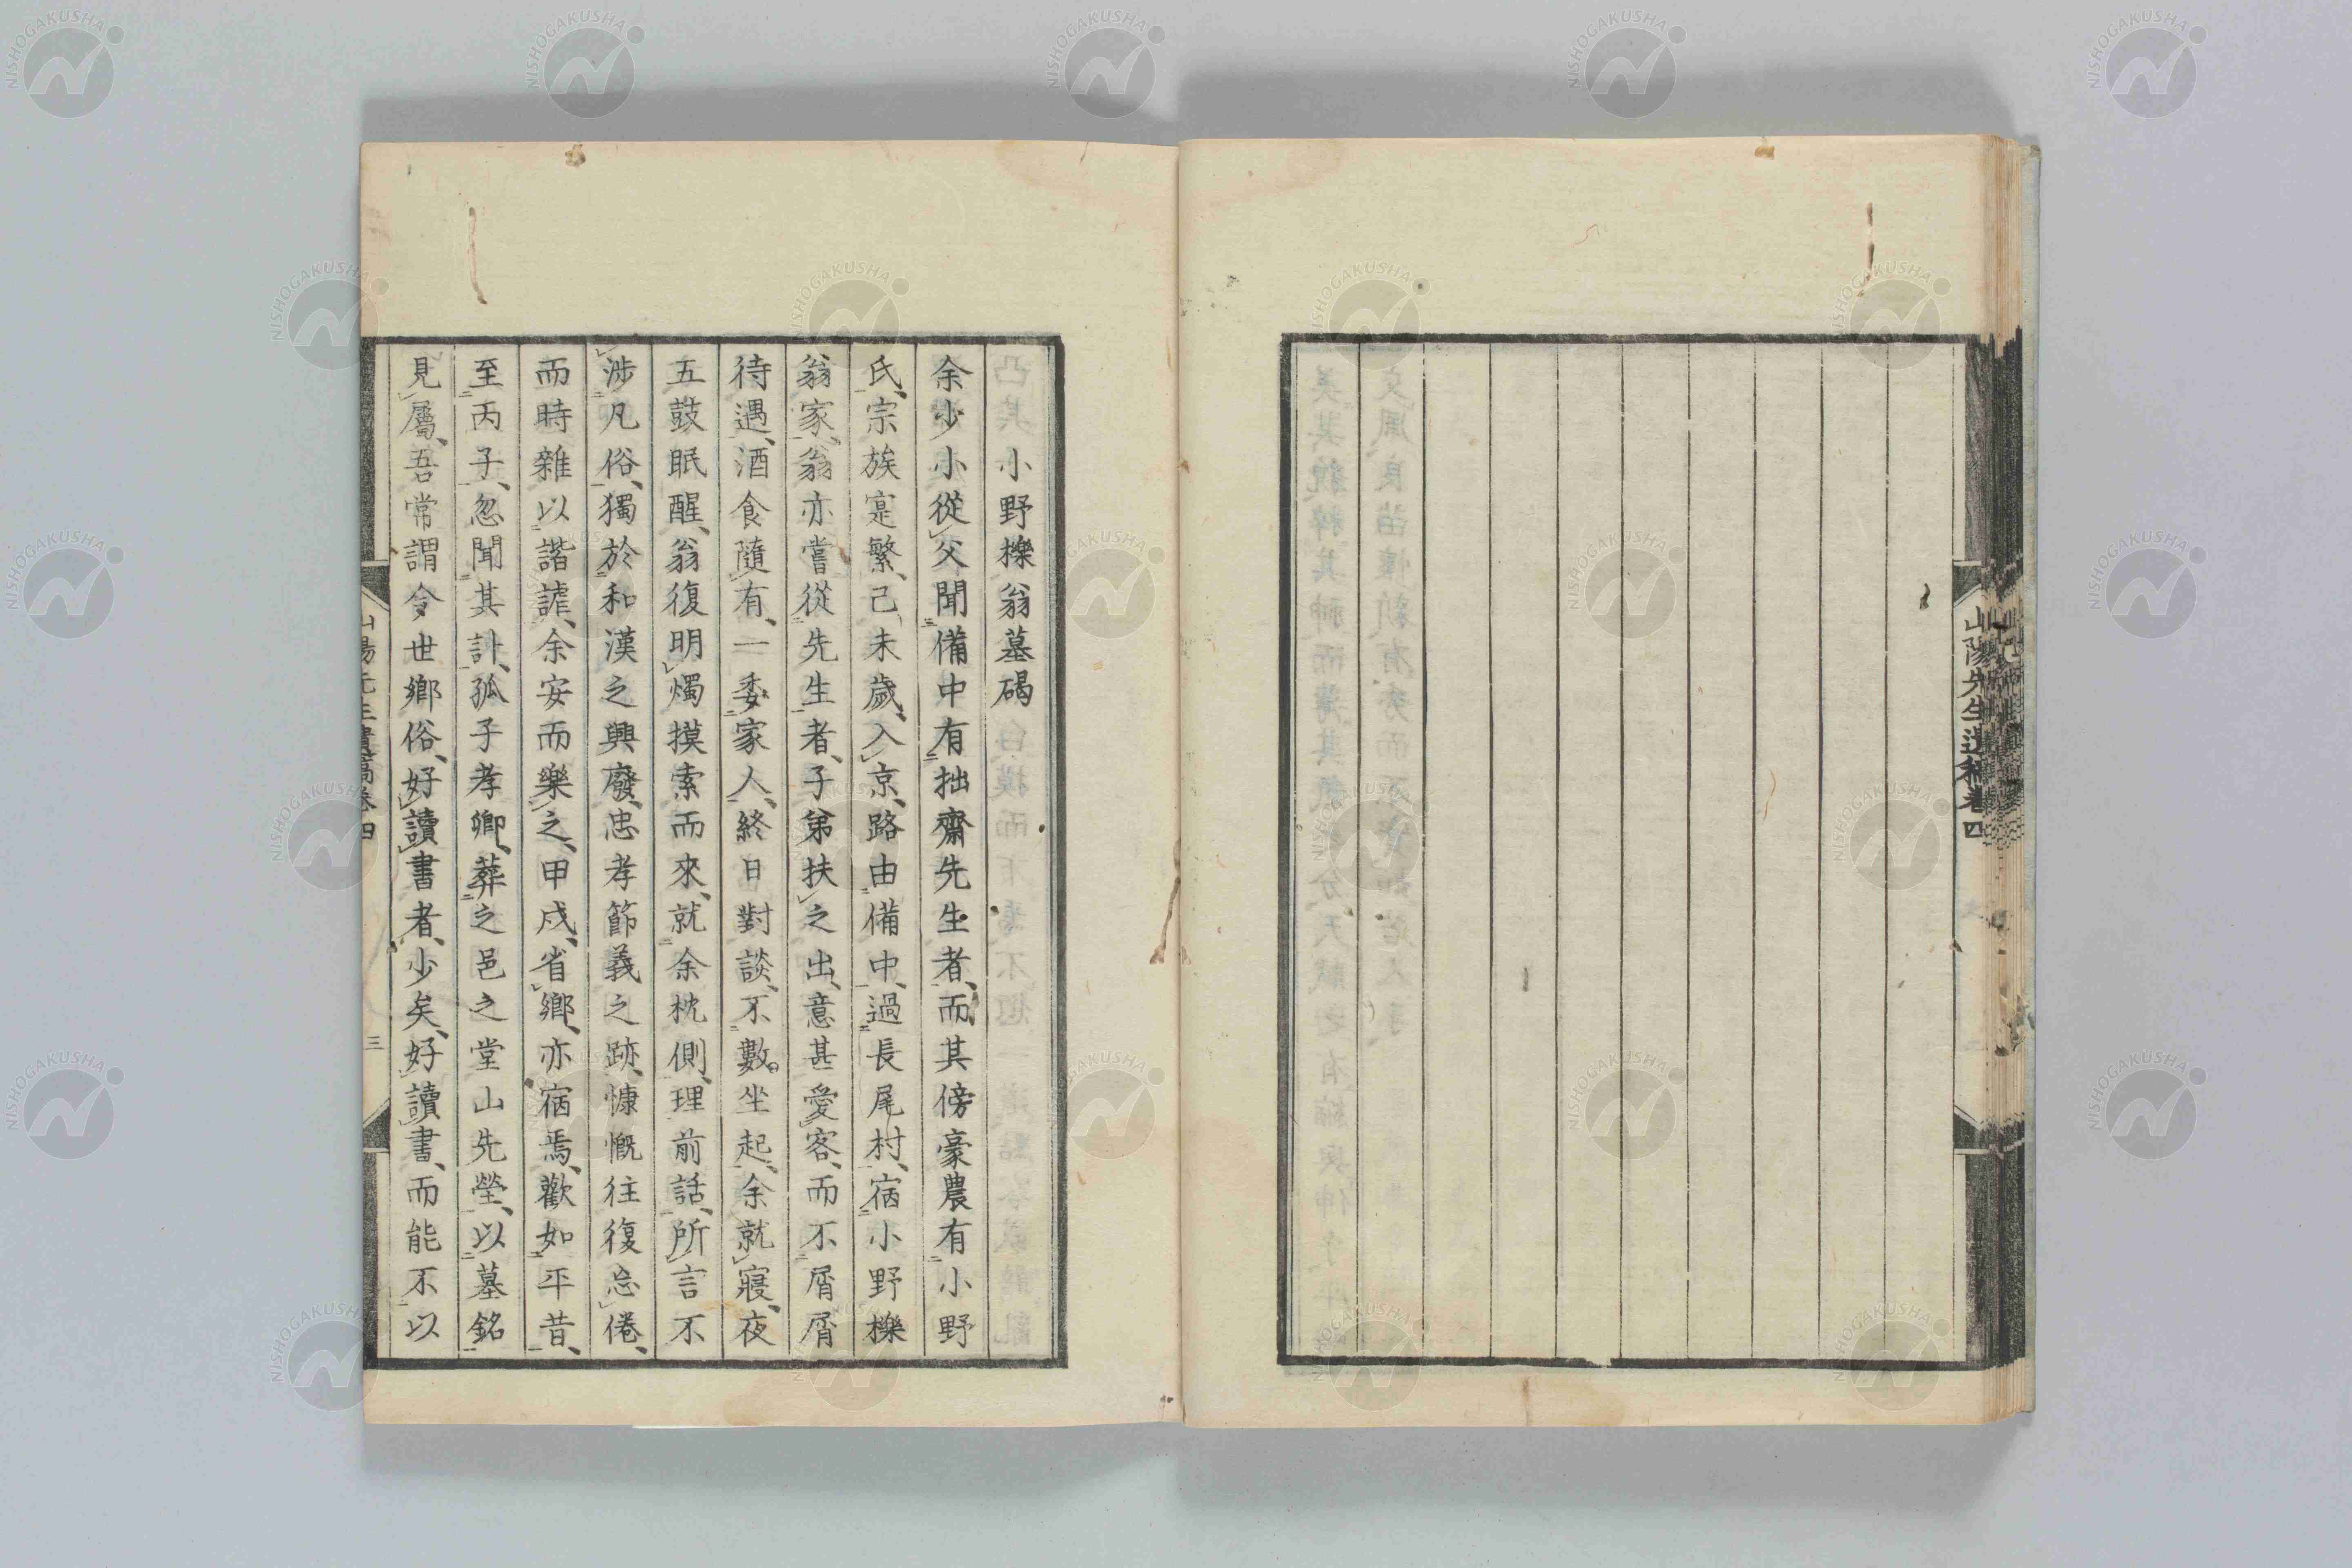 山陽先生遺稿卷四
小野櫟翁墓碣
余少小從父聞備中有拙齋先生者、而其傍豪農有小野
氏、宗族寔繁、己未歲、入京、路由備中、過長尾村、宿小野櫟
翁家、翁亦嘗從先生者、子弟扶之出、意甚愛客、而不屑屑
待遇、酒食隨有、一委家人、終日對談、不數坐起、余就寢、夜
五鼓眠醒、翁復明燭摸索而來、就余枕側、理前話、所言不
涉凡俗、獨於和漢之興廢、忠孝節義之跡、慷慨往復忘倦、
而時雜以諧謔、余安而樂之、甲戌、省鄉、亦宿焉、歡如平昔、
至丙子、忽聞其訃、孤子孝卿、葬之邑之堂山先塋、以墓銘
見屬、吾常謂今世鄉俗、好讀書者、少矣、好讀書、而能不以
山陽先生遺稿卷四
三
NISHOGAKUSHA